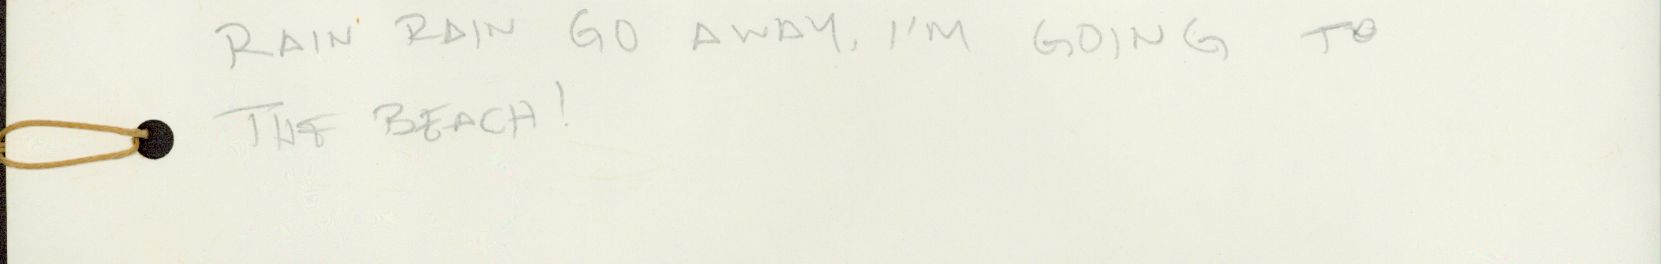 RAIN RAIN GO AWAY, I'M GOING TO
THE BEACH!